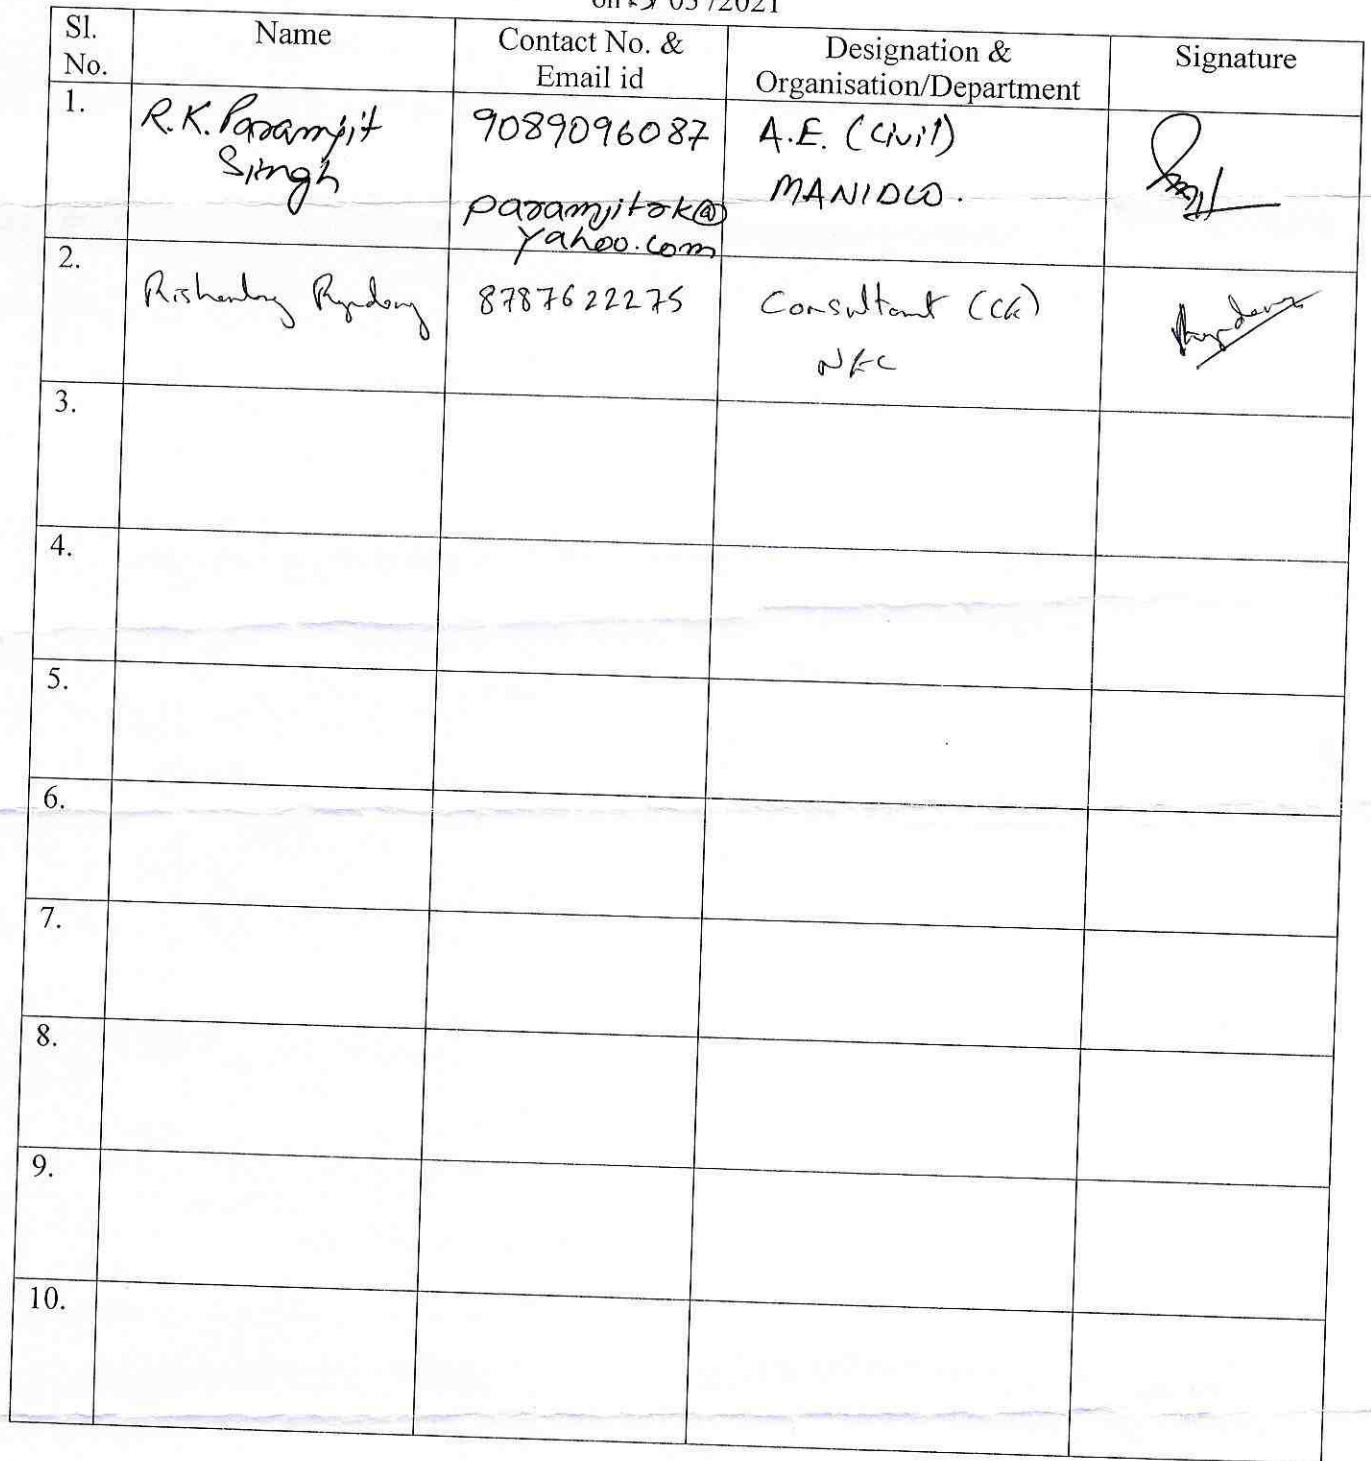 on 03/2021
Sl.
No.
Name
Contact No. &
Email id
Designation &
Organisation/Department
Signature
1.
R.K. Paramjit
Singh
9089096087
paramjitrk@
yahoo.com
A.E. (Civil)
MANIDCO.
2.
8787622275
Consultant
NEC
3.
4.
5.
6.
7.
8.
9.
10.